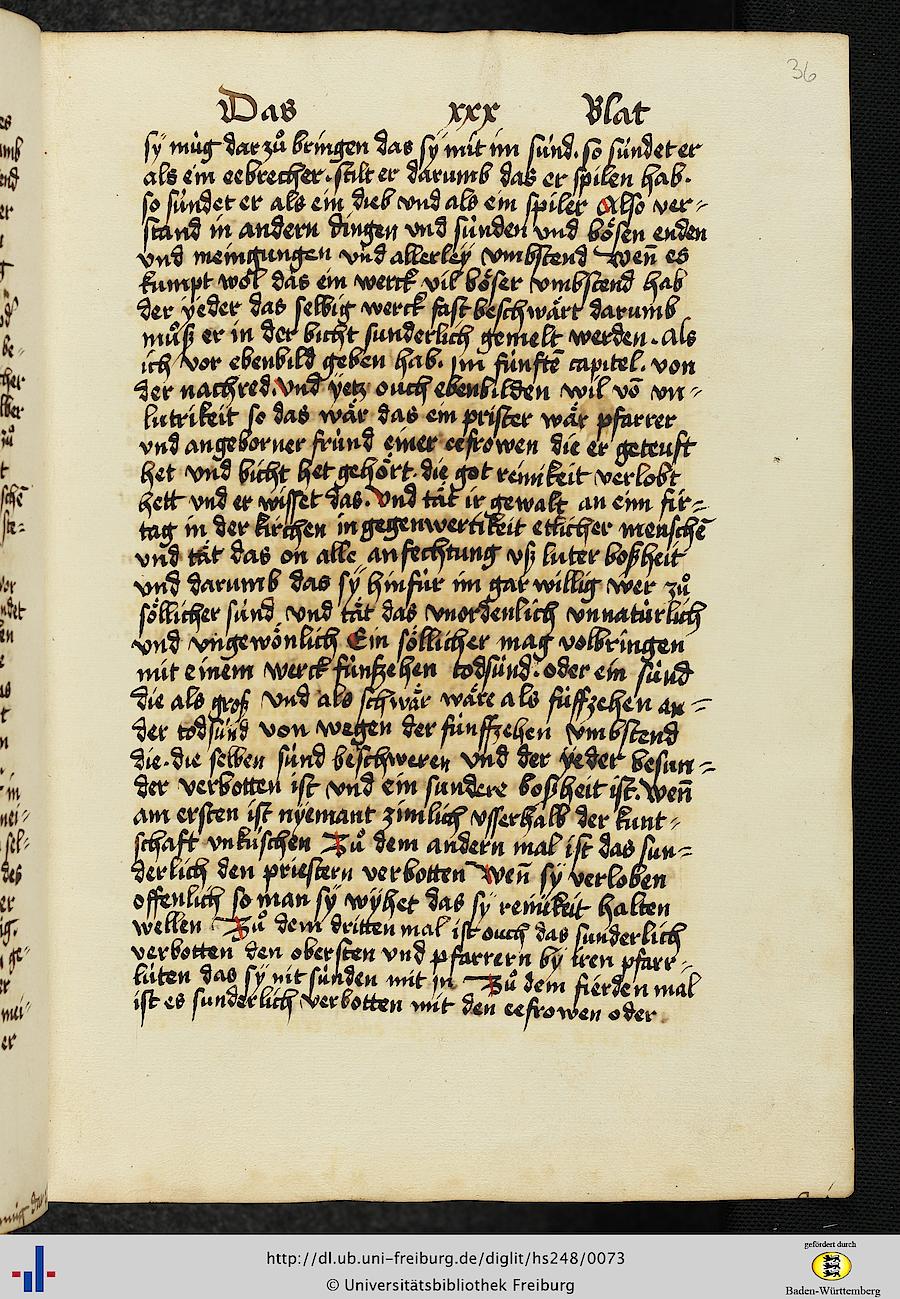 36
Das xxx Blat
sÿ mùg darzuͦ bringen das sÿ mit im sùnd. so sùndet er
als ein eebrecher. stilt er darumb das er spilen hab.
so sùndet er als ein dieb vnd als ein spiler Also ver⸗
stand in andern dingen vnd sùnden vnd boͤsen enden
vnd meingungen vnd allerleÿ vmbstend Wen̄ es
kumpt wol das ein werck vil boͤser vmbstend hab
der ÿeder das selbig werck fast beschwaͤrt darumb
muͦß er in der bicht sunderlich gemelt werden. Als
ich vor ebenbild geben hab. im fùnftē capitel. von
der nachred. Vnd ÿetz ouch ebenbilden wil vō vn⸗
lutrikeit so das waͤr das ein prister waͤr pfarrer
vnd angeborner frùnd einer eefrowen die er geteuft
het vnd bicht het gehoͤrt. die got reinikeit verlobt
hett vnd er wisset das. Vnd taͤt ir gewalt an eim fir⸗
tag in der kirchen in gegenwertikeit etlicher menschē
vnd taͤt das on alle anfechtung vß luter boßheit
vnd darumb das sÿ hinfùr im gar willig wer zuͦ
soͤllicher sùnd vnd taͤt das vnordenlich vnnatùrlich
vnd vngewoͤnlich Ein soͤllicher mag volbringen
mit einem werck fùnfzehen todsùnd. oder ein sùnd
die als groß vnd als schwaͤr waͤre als fùffzehen an⸗
der todsùnd von wegen der fùnffzehen vmbstend
die. die selben sùnd beschweren vnd der ÿeder besun⸗
der verbotten ist vnd ein sundere boßheit ist. Wen̄
am ersten ist nÿemant zimlich vsserhalb der kunt⸗
schaft vnkùschen Zuͦ dem andern mal ist das sun⸗
derlich den priestern verbotten Wen̄ sÿ verloben
offenlich so man sÿ wÿhet das sÿ reinikeit halten
wellen Zuͦ dem dritten mal ist ouch das sunderlich
verbotten den obersten vnd pfarrern bÿ iren pfarr⸗
lùten das sÿ nit sùnden mit in Zuͦ dem fierden mal
ist es sunderlich verbotten mit den eefrowen oder
http://dl.ub.uni-freiburg.de/diglit/hs248/0073
© Universitätsbibliothek Freiburg
gefördert durch
Baden-Württemberg